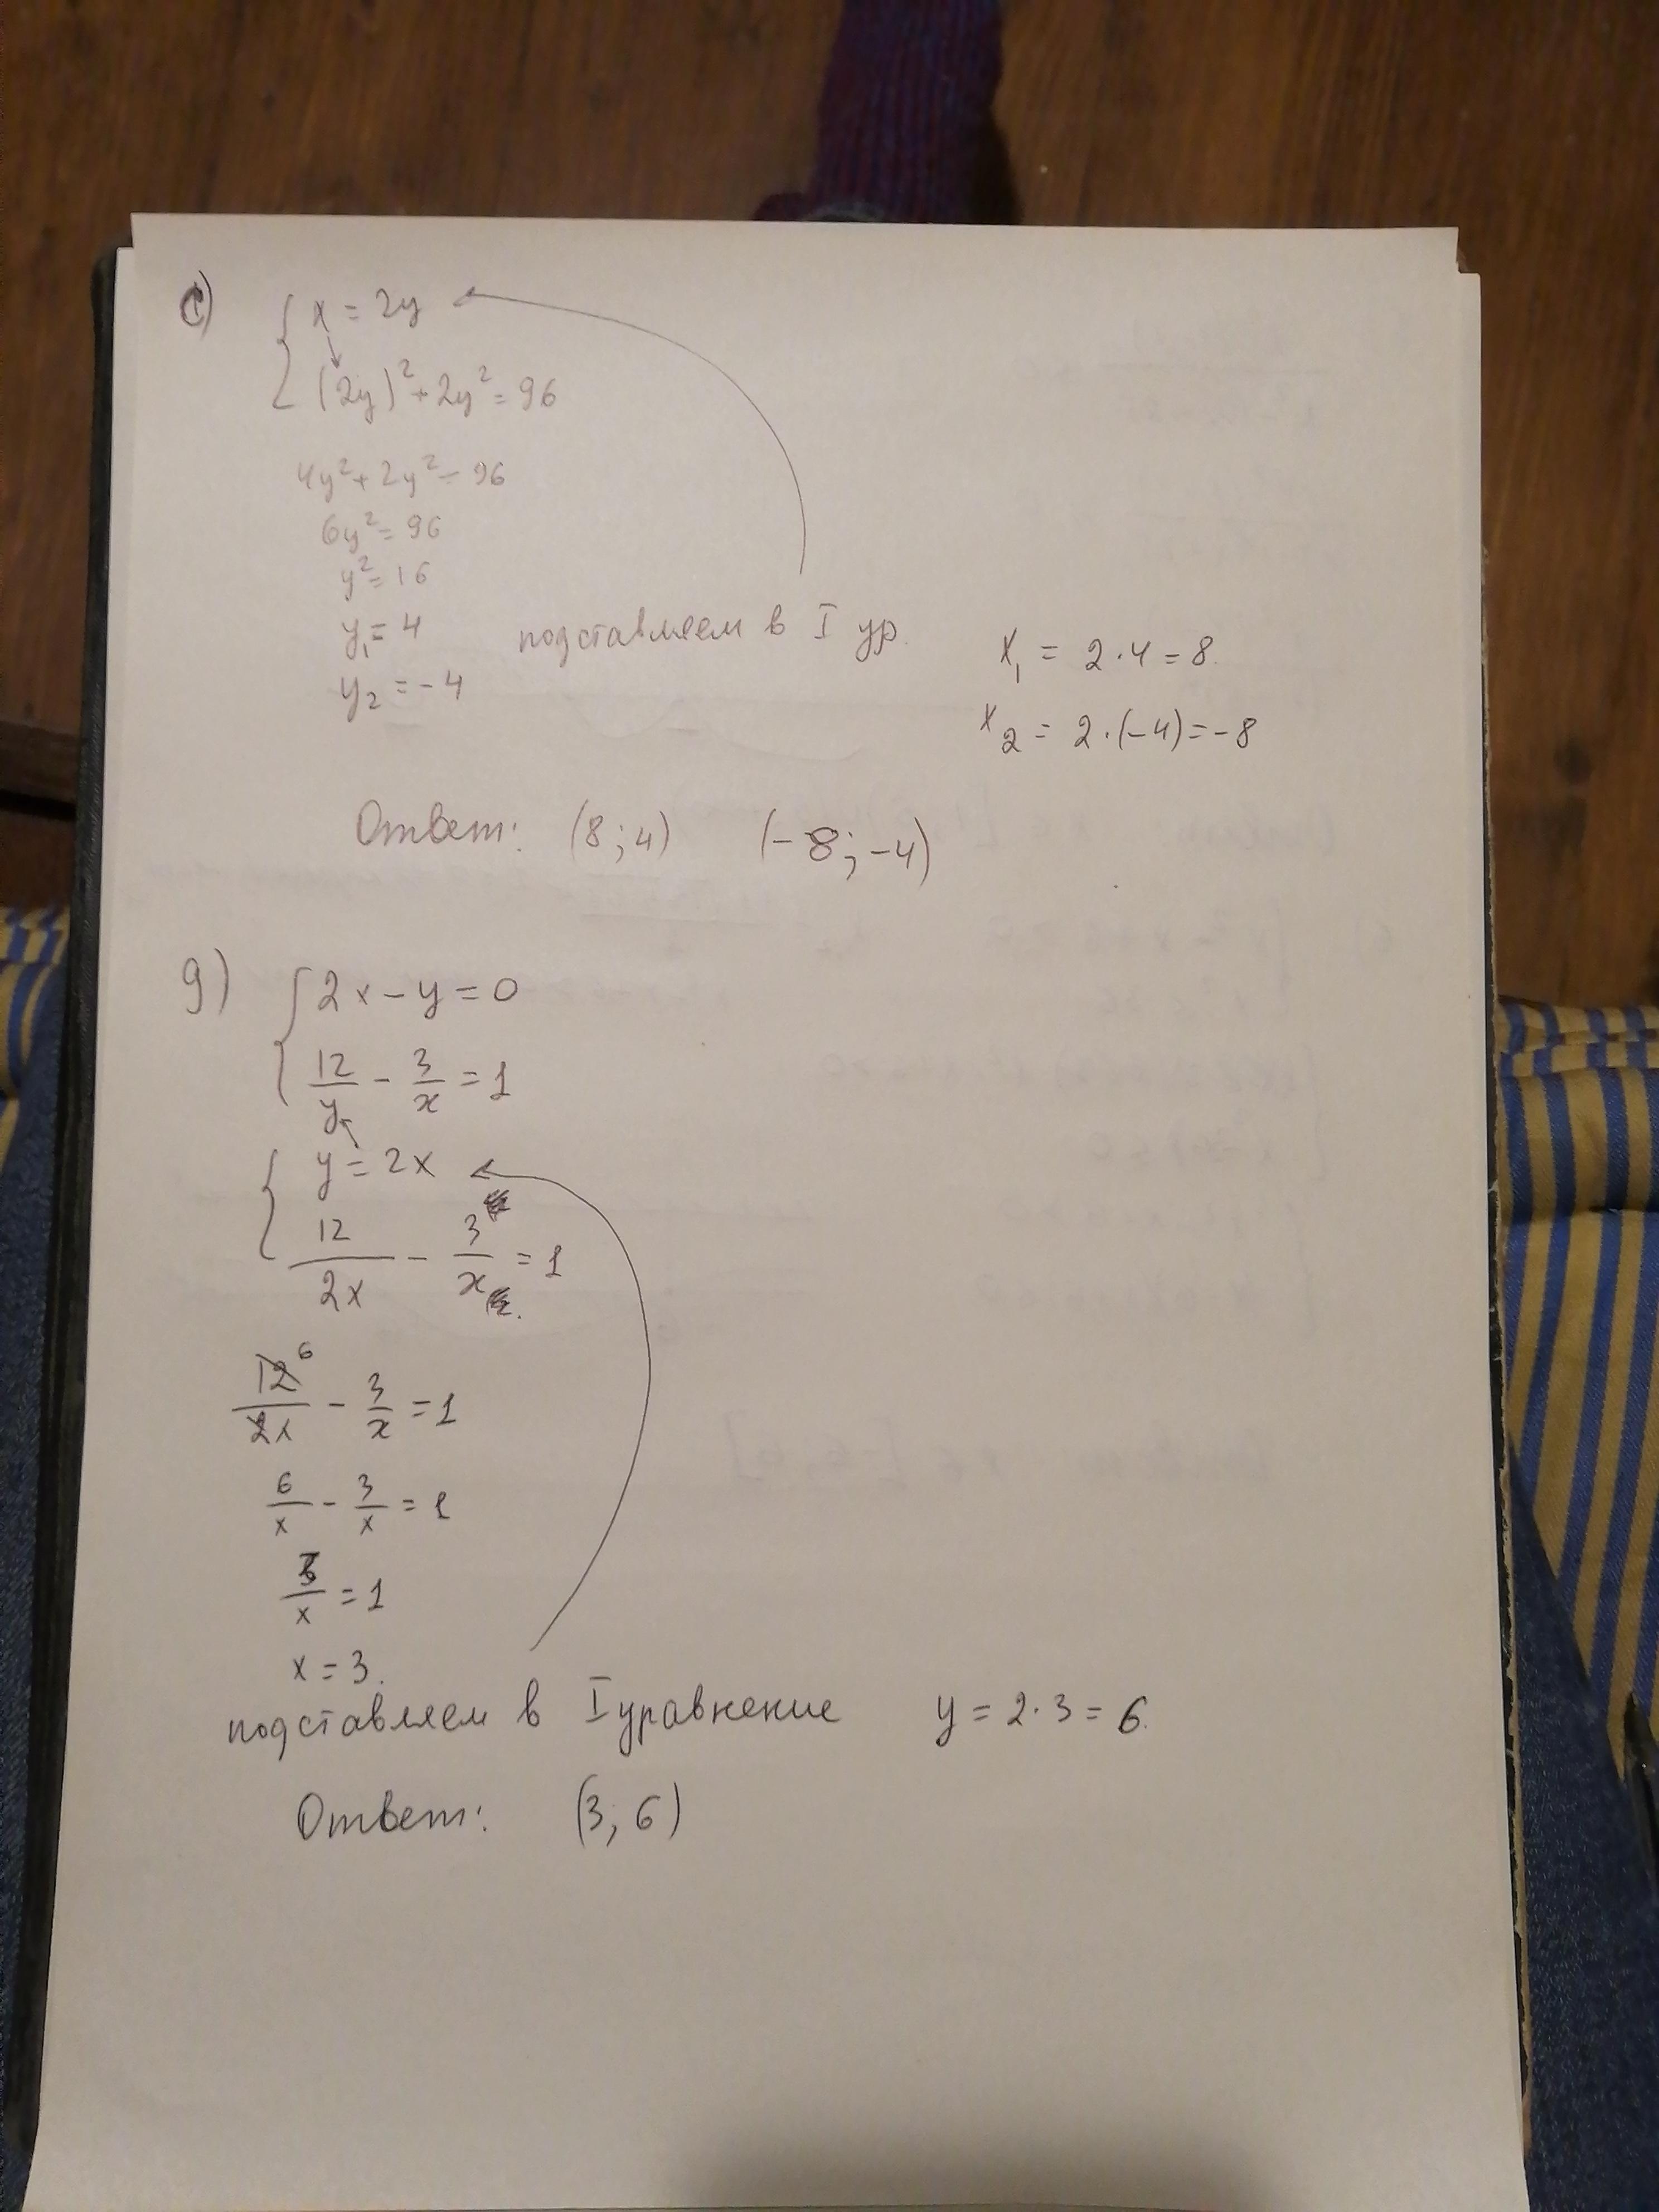 c) { x = 2y
(2y)² + 2y² = 96
4y² + 2y² = 96
6y² = 96
y² = 16
y₁ = 4
y₂ = -4
подставляем в I ур.
x₁ = 2·4 = 8.
x₂ = 2·(-4) = -8
Ответ: (8; 4) (-8; -4)
g) { 2x - y = 0
12/y - 3/x = 1
{ y = 2x
12/2x - 3/x = 1
12⁶/2x - 3/x = 1
6/x - 3/x = 1
3/x = 1
x = 3.
подставляем в I уравнение y = 2·3 = 6.
Ответ: (3; 6)